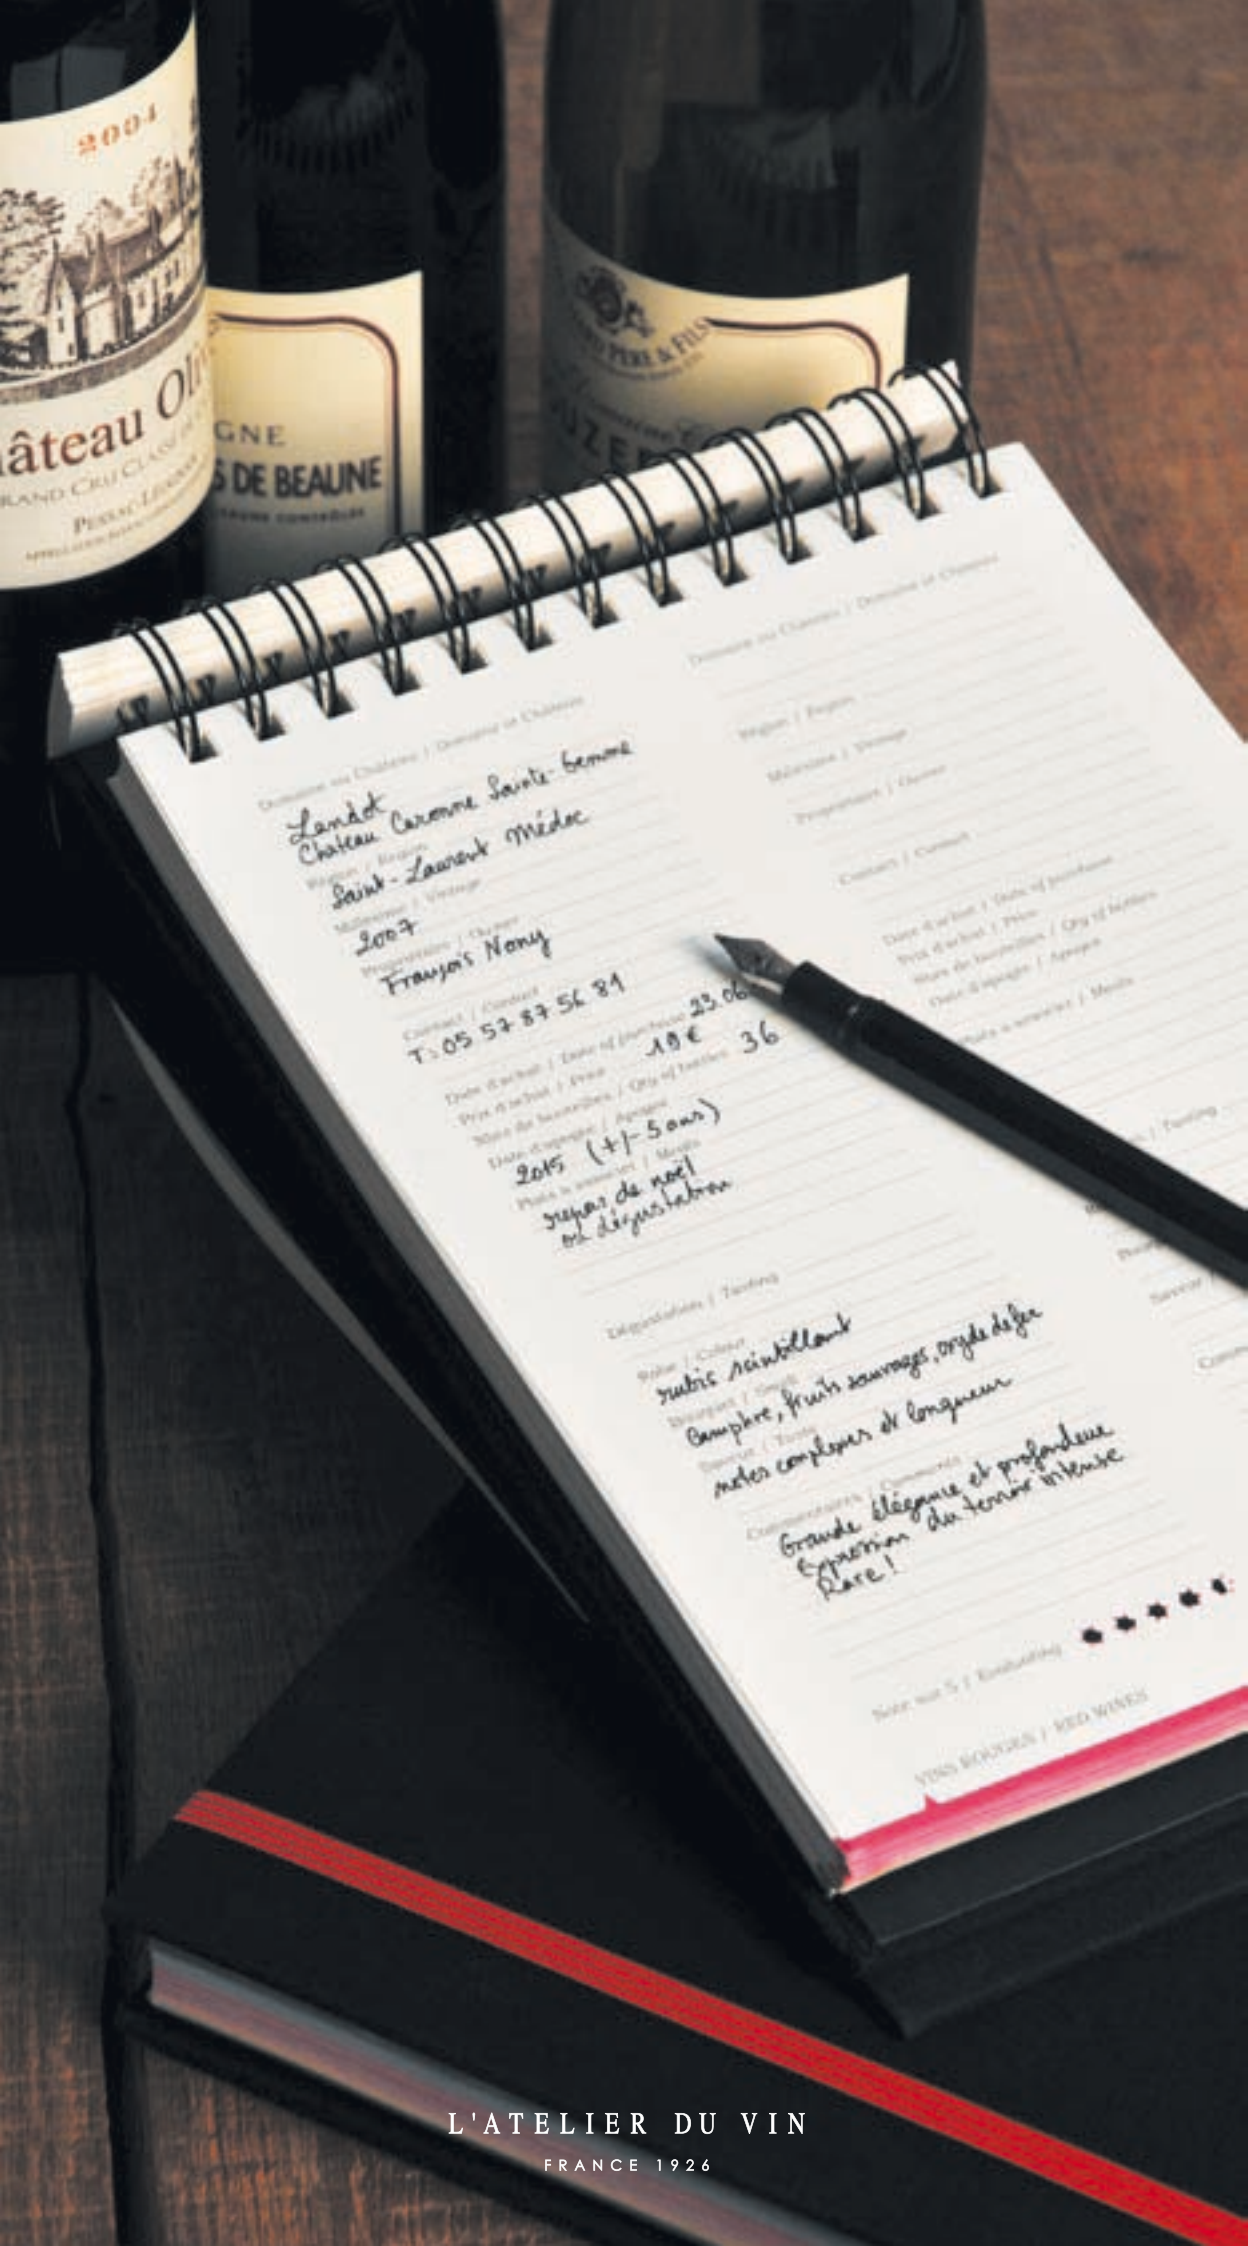 2004
Château Oli
GRAND CRU CLASSÉ
PESSAC-LÉOGNAN
GNE
S DE BEAUNE
CONTRÔLÉE
PÈRE & FILS
UZER
Domaine ou Château / Domaine or Château
Landot
Chateau Caronne Sainte-Gemme
Région / Region
Saint-Laurent Médoc
Millésime / Vintage
2007
Propriétaire / Owner
François Nony
Contact / Contact
T: 05 57 87 56 81
Date d'achat / Date of purchase 23.06
Prix d'achat / Price 19€
Nbre de bouteilles / Qty of bottles 36
Date d'apogée / Apogee
2015 (+/- 5 ans)
Plats à associer / Meals
repas de noël
ou dégustation
Dégustation / Tasting
Robe / Colour
rubis scintillant
Bouquet / Smell
Camphre, fruits sauvages, oxyde de fer
Saveur / Taste
notes complexes et longueur
Commentaires / Comments
Grande élégance et profondeur
Expression du terroir intense
Rare!
Note sur 5 / Evaluating
VINS ROUGES / RED WINES
Domaine ou Château / Domaine or Château
Région / Region
Millésime / Vintage
Propriétaire / Owner
Contact / Contact
Date d'achat / Date of purchase
Prix d'achat / Price
Nbre de bouteilles / Qty of bottles
Date d'apogée / Apogee
Plats à associer / Meals
/ Tasting
Saveur /
L'ATELIER DU VIN
FRANCE 1926